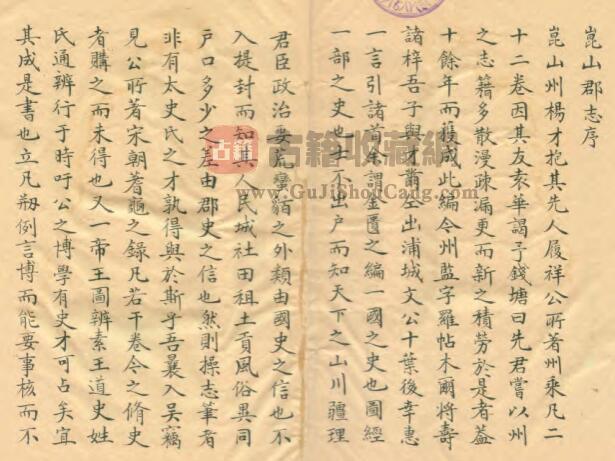 崑山郡志序
崑山州楊才抱其先人履祥公所著州乘凡二
十二卷因其友袁華謁予錢塘曰先君嘗以州
之志籍多散漫疎漏更而新之積勞於是者蓋
十餘年而獲成此編今州監字羅帖木爾將壽
諸梓吾子與才爲出浦城文公十葉後幸惠
一言引諸首余謂金匱之編一國之史也圖經
一部之史也士不出户而知天下之山川疆理
君臣政治要荒蠻貊之外類由國史之信也不
入提封而知其人民城社田租土貢風俗異同
户口多少之差由郡史之信也然則操志筆者
非有太史氏之才孰得與於斯乎吾曩入吴竊
見公所著宋朝蓍龜之録凡若干卷今之脩史
者購之而未得也又一帝王圖辨素王道史姓
氏通辨行于時吁公之博學有史才可占矣宜
其成是書也立凡刱例言博而能要事核而不
古籍
古籍收藏網
www.GuJiShouCang.com